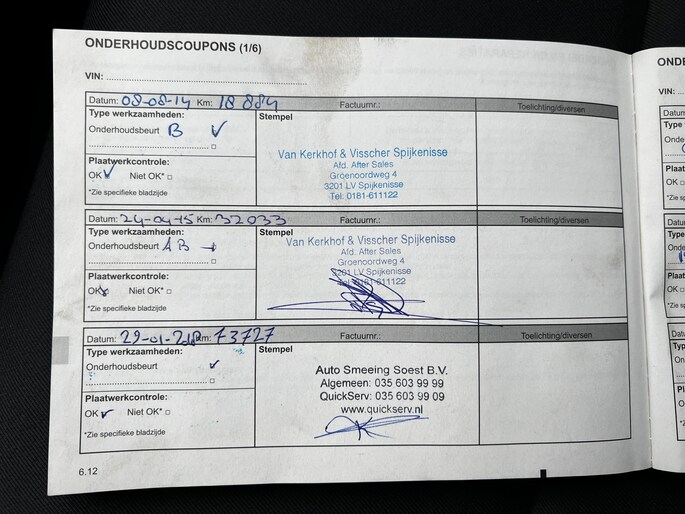 ONDERHOUDSCOUPONS (1/6)
VIN:
Datum: 08-08-14 Km: 18 884 Factuurnr.: Toelichting/diversen
Type werkzaamheden: Stempel
Onderhoudsbeurt B
Van Kerkhof & Visscher Spijkenisse
Afd. After Sales
Groenoordweg 4
3201 LV Spijkenisse
Tel: 0181-611122
Plaatwerkcontrole:
OK Niet OK*
*Zie specifieke bladzijde
Datum: 24-04-15 Km: 32033 Factuurnr.: Toelichting/diversen
Type werkzaamheden: Stempel
Onderhoudsbeurt A B
Van Kerkhof & Visscher Spijkenisse
Afd. After Sales
Groenoordweg 4
3201 LV Spijkenisse
Tel: 0181-611122
Plaatwerkcontrole:
OK Niet OK*
*Zie specifieke bladzijde
Datum: 29-01- Km: 73727 Factuurnr.: Toelichting/diversen
Type werkzaamheden: Stempel
Onderhoudsbeurt
Auto Smeeing Soest B.V.
Algemeen: 035 603 99 99
QuickServ: 035 603 99 09
www.quickserv.nl
Plaatwerkcontrole:
OK Niet OK*
*Zie specifieke bladzijde
6.12